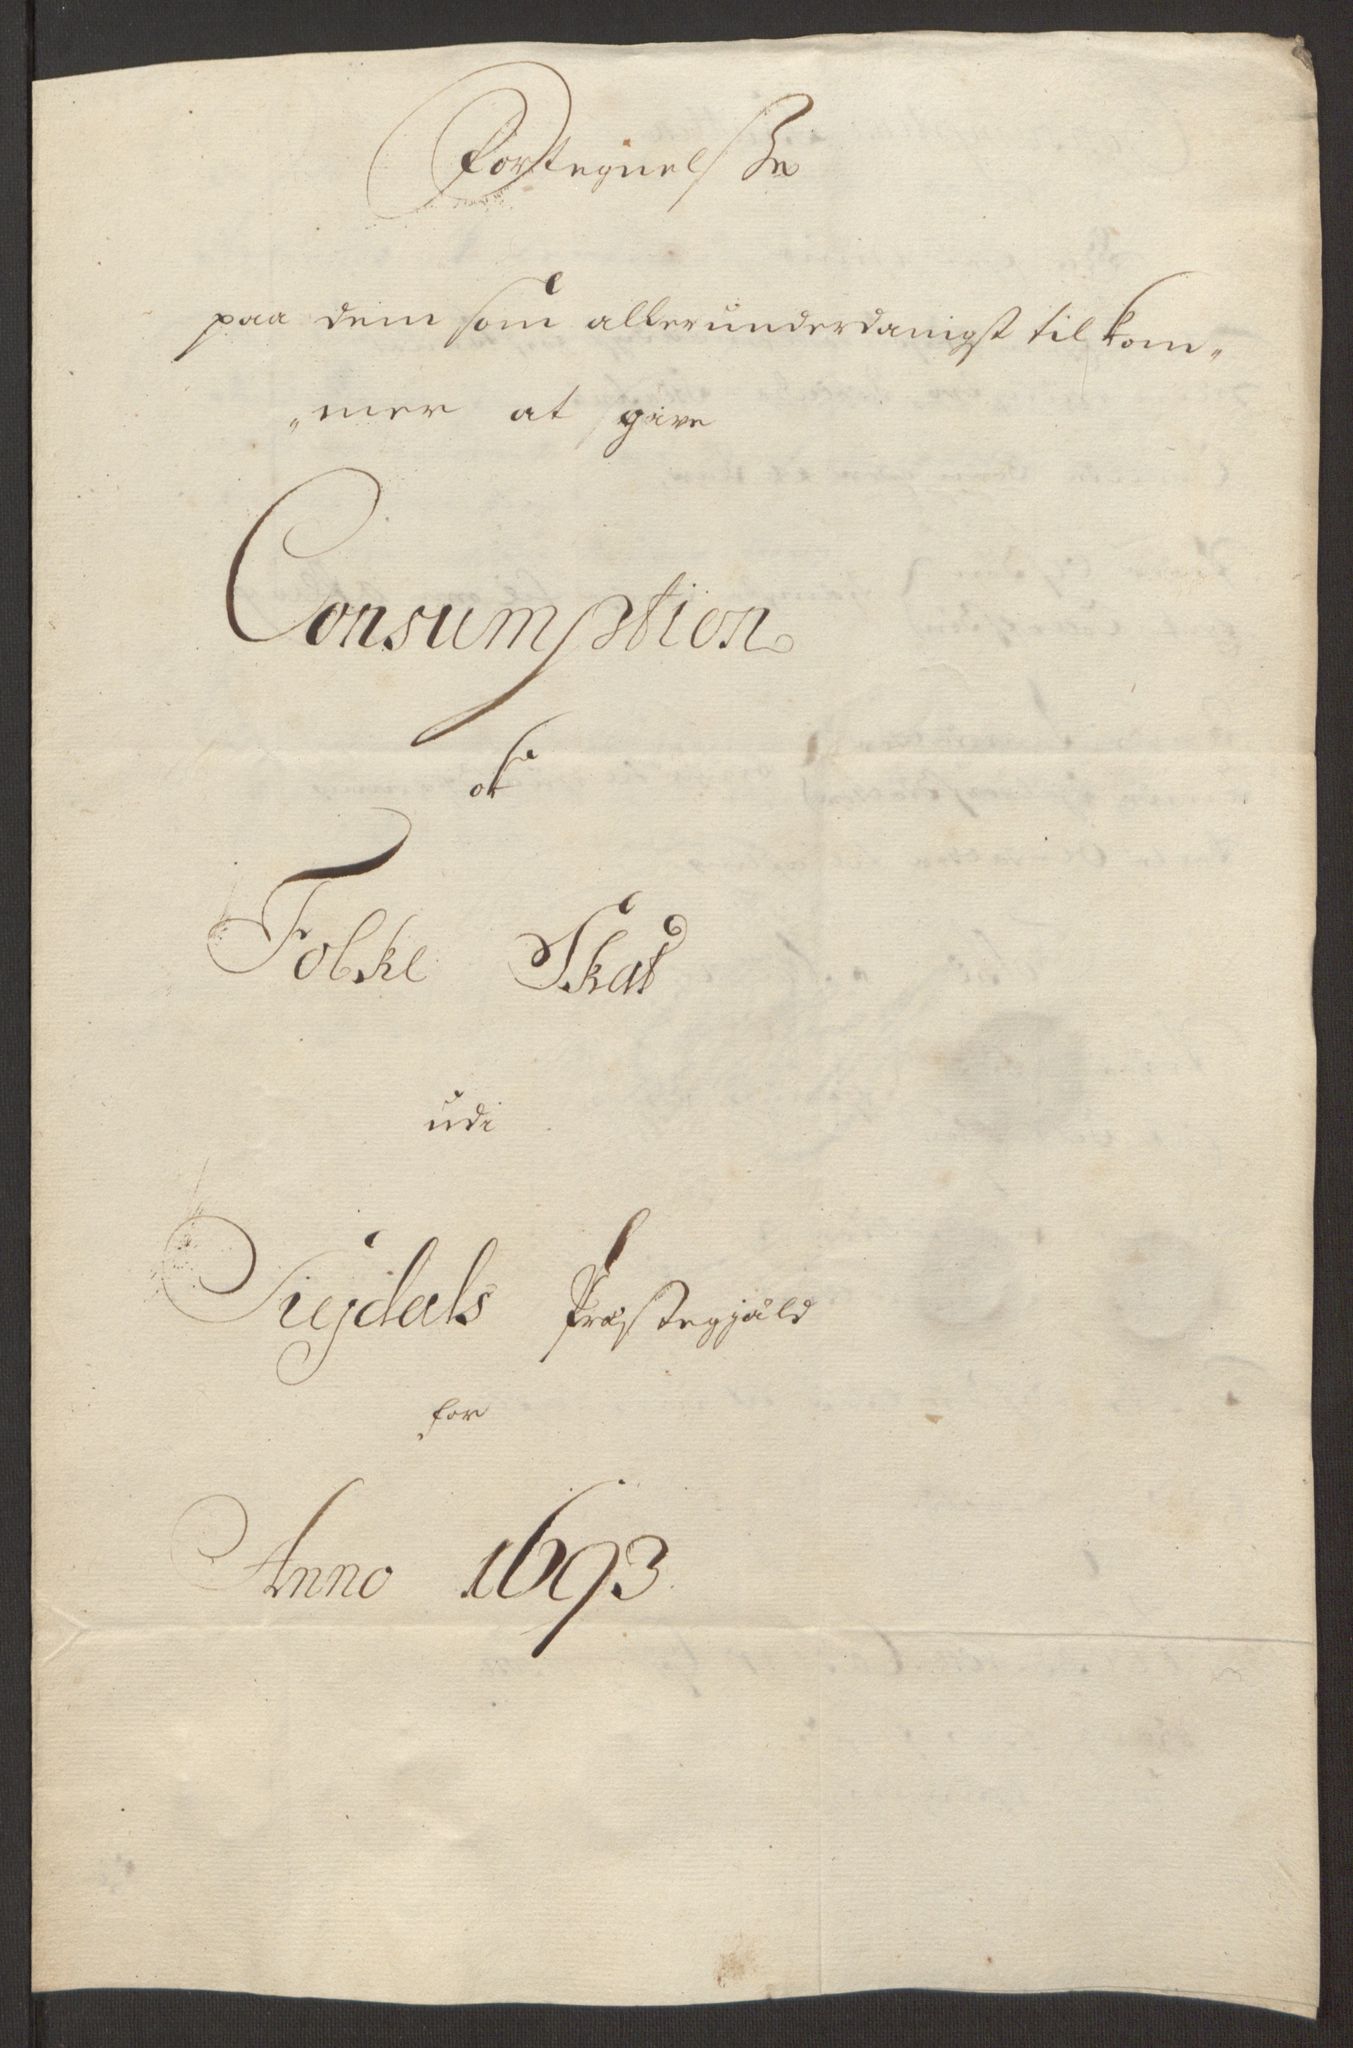 Fortegnelsße
paa dem som allerunderdanigst tilkom„
„mer at give
Consumption
ok
Folke Skat
udi
Sigdals Præstegjæld
for
Anno 1693